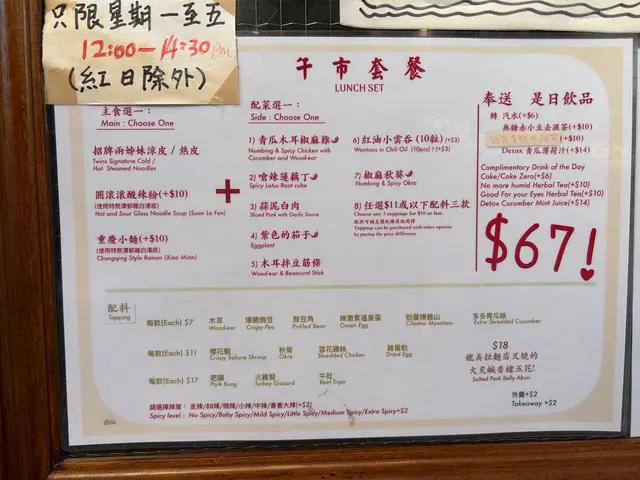 只限星期一至五
12:00-14:30pm
(紅日除外)
午市套餐
LUNCH SET
主食選一：
Main : Choose One
招牌兩姊妹涼皮 / 熱皮
Twins Signature Cold /
Hot Steamed Noodles
團滾滾酸辣粉(+$10)
(使用特熬濃郁雞白湯底)
Hot and Sour Glass Noodle Soup (Suan La Fen)
重慶小麵(+$10)
(使用特熬濃郁雞白湯底)
Chongqing Style Ramen (Xiao Mian)
+
配菜選一：
Side : Choose One
1) 青瓜木耳椒麻雞
Numbing & Spicy Chicken with
Cucumber and Wood-ear
2) 嗆辣蓮藕丁
Spicy Lotus Root cube
3) 蒜泥白肉
Sliced Pork with Garlic Sauce
4) 紫色的茄子
Eggplant
5) 木耳拌豆筋條
Wood-ear & Beancurd Stick
6) 紅油小雲吞 (10粒) (+$3)
Wontons in Chili Oil (10pcs) (+$3)
7) 椒麻秋葵
Numbing & Spicy Okra
8) 任選$11或以下配料三款
Choose any 3 toppings for $10 or less
配料可補差價改購其他選擇
Toppings can be purchased with other options
by paying the price difference
奉送 是日飲品
轉 汽水(+$6)
無糖赤小豆去濕茶(+$10)
Detox 青瓜薄荷汁(+$14)
Complimentary Drink of the Day
Coke/Coke Zero(+$6)
No more humid Herbal Tea(+$10)
Good For your Eyes Herbal Tea(+$10)
Detox Cucumber Mint Juice(+$14)
$67!
配料
Topping
每款(Each) $7
木耳
Wood-ear
爆脆豌豆
Crispy Pea
醇豆角
Pickled Bean
無激素溫泉蛋
Onsen Egg
勁量爆蕪山
Cilantro Mountain
多多青瓜絲
Extra Shredded Cucumber
每款(Each) $11
櫻花蝦
Crispy Sakura Shrimp
秋葵
Okra
雪花雞絲
Shredded Chicken
雞蛋乾
Dried Egg
每款(Each) $17
肥腸
Pork Bung
火雞腎
Turkey Gizzard
牛肚
Beef Tripe
$18
媲美拉麵店又燒的
火炙鹹香豬五花!
Salted Pork Belly Aburi
請選擇辣度： 走辣/BB辣/微辣/小辣/中辣/番番大辣(+$2)
Spicy level : No Spicy/Baby Spicy/Mild Spicy/Little Spicy/Medium Spicy/Extra Spicy+$2
外賣+$2
Takeaway +$2